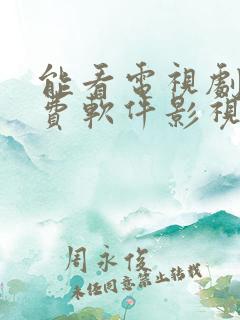 能看電視劇
費軟件影視
周永俊
未经同意禁止转载